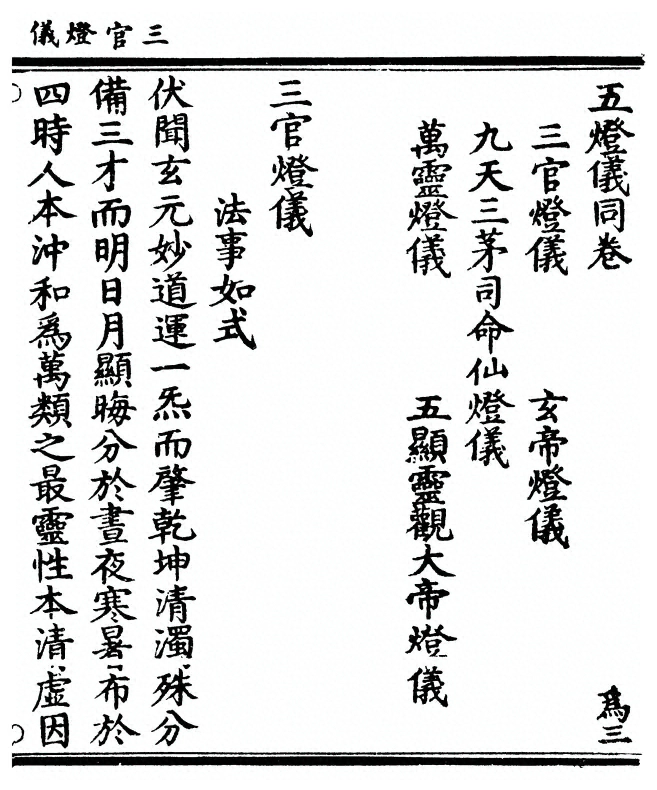 三官燈儀
五燈儀同卷 爲三
三官燈儀 玄帝燈儀
九天三茅司命仙燈儀
萬靈燈儀 五顯靈觀大帝燈儀
三官燈儀
法事如式
伏聞玄元妙道運一炁而肇乾坤清濁殊分
備三才而明日月顯晦分於晝夜寒暑布於
四時人本沖和爲萬類之最靈性本清虛因